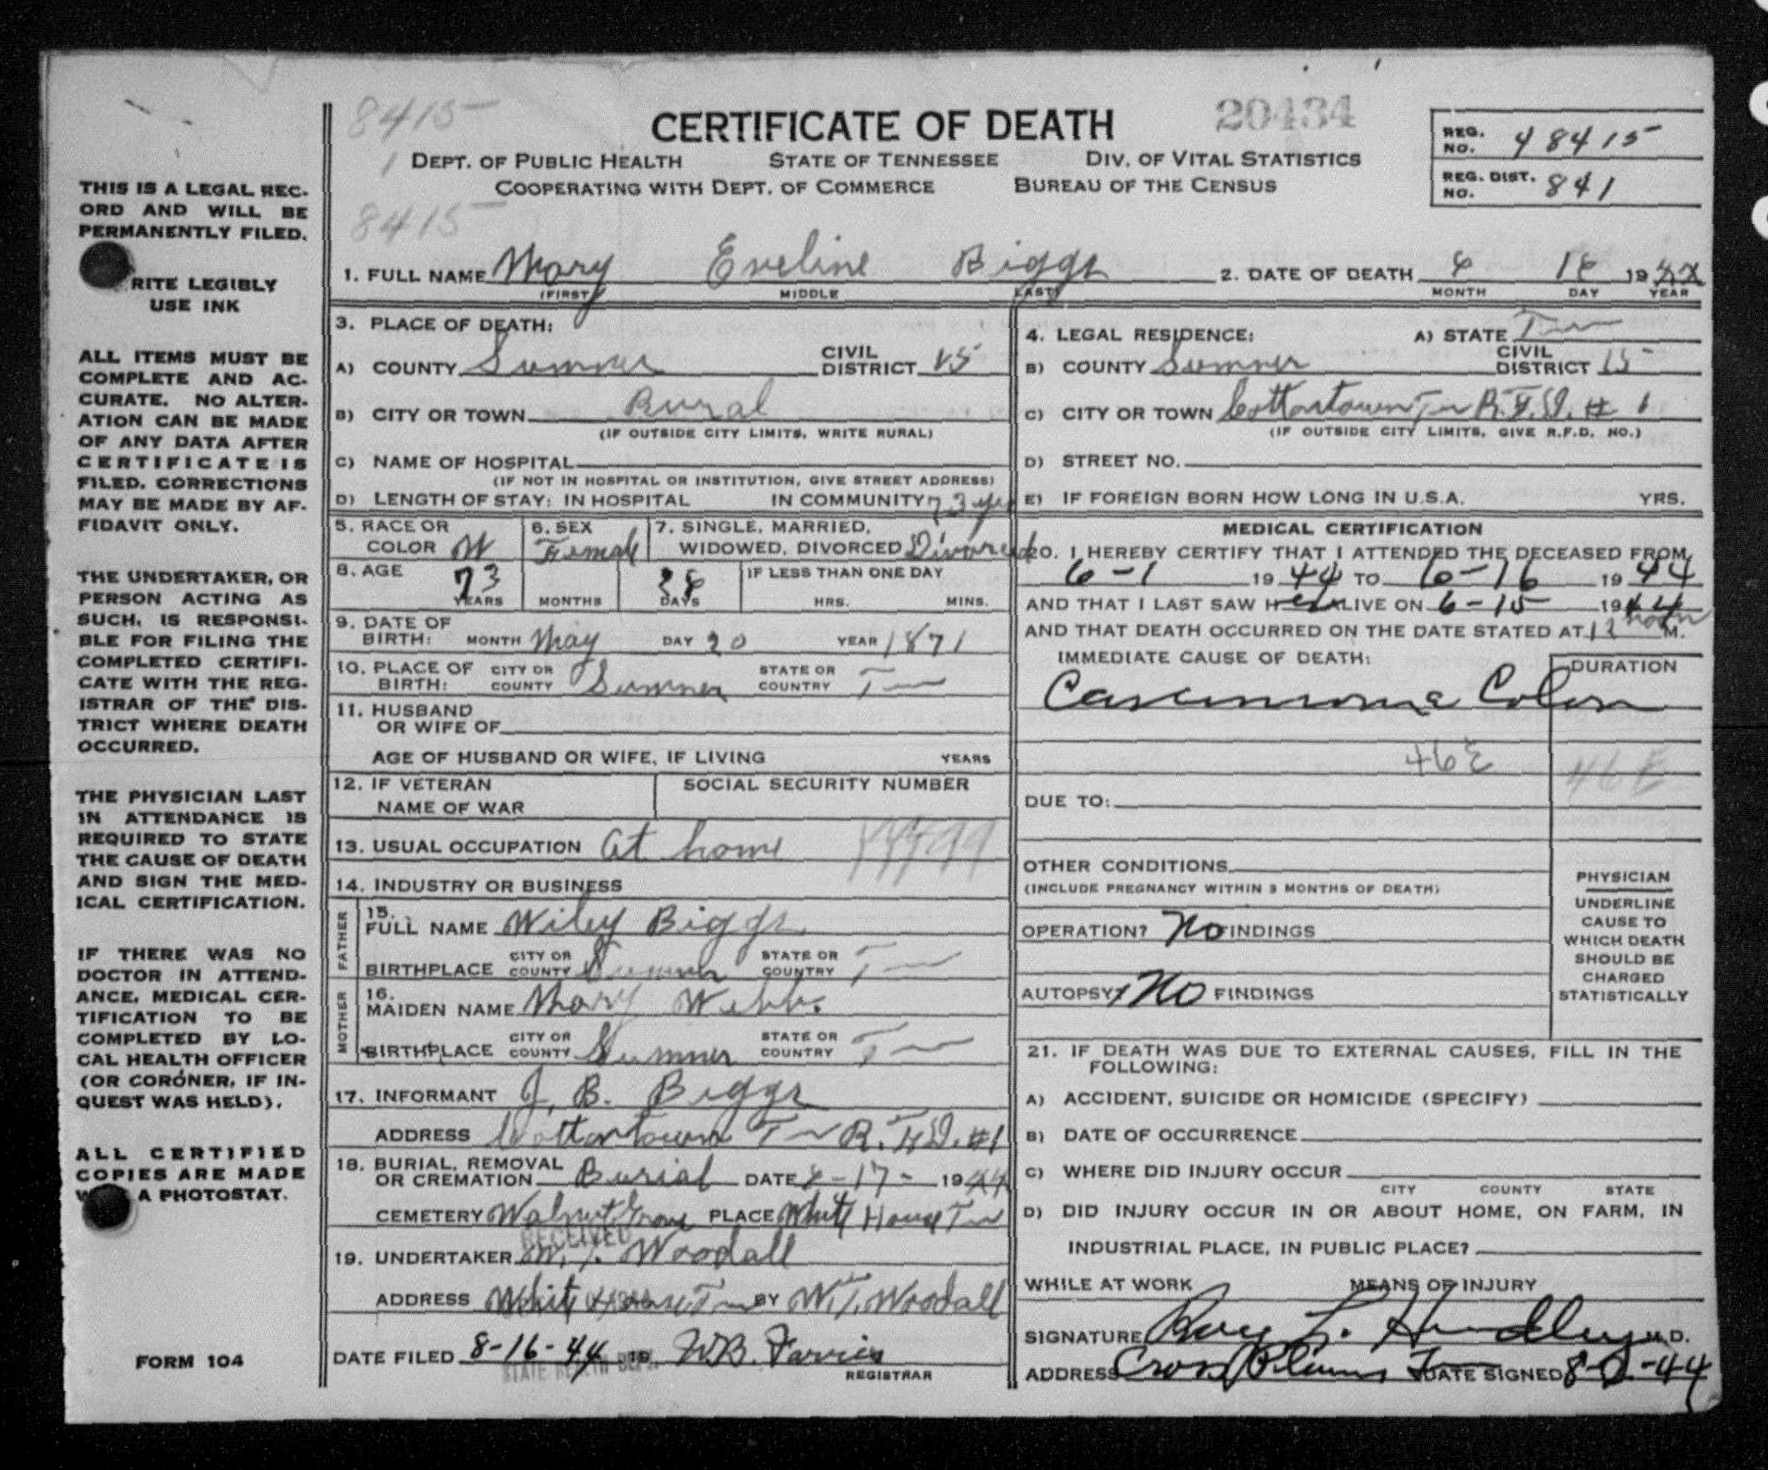 THIS IS A LEGAL REC-
ORD AND WILL BE
PERMANENTLY FILED.
RITE LEGIBLY
USE INK
ALL ITEMS MUST BE
COMPLETE AND AC-
CURATE. NO ALTER-
ATION CAN BE MADE
OF ANY DATA AFTER
CERTIFICATE IS
FILED. CORRECTIONS
MAY BE MADE BY AF-
FIDAVIT ONLY.
THE UNDERTAKER, OR
PERSON ACTING AS
SUCH, IS RESPONSI-
BLE FOR FILING THE
COMPLETED CERTIFI-
CATE WITH THE REG-
ISTRAR OF THE DIS-
TRICT WHERE DEATH
OCCURRED.
THE PHYSICIAN LAST
IN ATTENDANCE IS
REQUIRED TO STATE
THE CAUSE OF DEATH
AND SIGN THE MED-
ICAL CERTIFICATION.
IF THERE WAS NO
DOCTOR IN ATTEND-
ANCE, MEDICAL CER-
TIFICATION TO BE
COMPLETED BY LO-
CAL HEALTH OFFICER
(OR CORONER, IF IN-
QUEST WAS HELD).
ALL CERTIFIED
COPIES ARE MADE
A PHOTOSTAT.
FORM 104
8415
CERTIFICATE OF DEATH
20434
REG. NO. 48415
1 DEPT. OF PUBLIC HEALTH STATE OF TENNESSEE DIV. OF VITAL STATISTICS
COOPERATING WITH DEPT. OF COMMERCE BUREAU OF THE CENSUS
REG. DIST. NO. 841
8415
1. FULL NAME Mary Eveline Biggs 2. DATE OF DEATH 6 16 19
(FIRST) MIDDLE (LAST) MONTH DAY YEAR
3. PLACE OF DEATH:
A) COUNTY Sumner CIVIL DISTRICT 15
B) CITY OR TOWN Rural
(IF OUTSIDE CITY LIMITS, WRITE RURAL)
C) NAME OF HOSPITAL
(IF NOT IN HOSPITAL OR INSTITUTION, GIVE STREET ADDRESS)
D) LENGTH OF STAY: IN HOSPITAL IN COMMUNITY 73 yrs
5. RACE OR COLOR W 6. SEX Female 7. SINGLE, MARRIED, WIDOWED, DIVORCED Divorced
8. AGE 73 YEARS MONTHS 28 DAYS IF LESS THAN ONE DAY HRS. MINS.
9. DATE OF BIRTH: MONTH May DAY 20 YEAR 1871
10. PLACE OF BIRTH: CITY OR COUNTY Sumner STATE OR COUNTRY Tn
11. HUSBAND OR WIFE OF
AGE OF HUSBAND OR WIFE, IF LIVING YEARS
12. IF VETERAN NAME OF WAR SOCIAL SECURITY NUMBER
13. USUAL OCCUPATION At home
14. INDUSTRY OR BUSINESS
FATHER
15. FULL NAME Wiley Biggs
BIRTHPLACE CITY OR COUNTY Sumner STATE OR COUNTRY Tn
MOTHER
16. MAIDEN NAME Mary Webb.
BIRTHPLACE CITY OR COUNTY Sumner STATE OR COUNTRY Tn
17. INFORMANT J. B. Biggs
ADDRESS Cottontown Tn R.F.D. #1
18. BURIAL, REMOVAL OR CREMATION Burial DATE 6-17- 1944
CEMETERY Walnut Grove PLACE White House Tn
RECEIVED
19. UNDERTAKER Woodall
ADDRESS White House Tn BY W.T. Woodall
DATE FILED 8-16-44 19 W.B. Farris
STATE HEALTH DEPT.
REGISTRAR
4. LEGAL RESIDENCE: A) STATE Tn
B) COUNTY Sumner CIVIL DISTRICT 15
C) CITY OR TOWN Cottontown Tn R.F.D. # 1
(IF OUTSIDE CITY LIMITS, GIVE R.F.D. NO.)
D) STREET NO.
E) IF FOREIGN BORN HOW LONG IN U.S.A. YRS.
MEDICAL CERTIFICATION
20. I HEREBY CERTIFY THAT I ATTENDED THE DECEASED FROM
6-1 1944 TO 6-16 1944
AND THAT I LAST SAW HER ALIVE ON 6-15 1944
AND THAT DEATH OCCURRED ON THE DATE STATED AT 12 noon M.
IMMEDIATE CAUSE OF DEATH: DURATION
Carcinoma Colon
46E 46E
DUE TO:
OTHER CONDITIONS
(INCLUDE PREGNANCY WITHIN 3 MONTHS OF DEATH)
OPERATION? No FINDINGS
AUTOPSY? No FINDINGS
PHYSICIAN
UNDERLINE
CAUSE TO
WHICH DEATH
SHOULD BE
CHARGED
STATISTICALLY
21. IF DEATH WAS DUE TO EXTERNAL CAUSES, FILL IN THE
FOLLOWING:
A) ACCIDENT, SUICIDE OR HOMICIDE (SPECIFY)
B) DATE OF OCCURRENCE
C) WHERE DID INJURY OCCUR
CITY COUNTY STATE
D) DID INJURY OCCUR IN OR ABOUT HOME, ON FARM, IN
INDUSTRIAL PLACE, IN PUBLIC PLACE?
WHILE AT WORK MEANS OF INJURY
SIGNATURE Roy L. Hendley M.D.
ADDRESS Cross Plains Tn DATE SIGNED